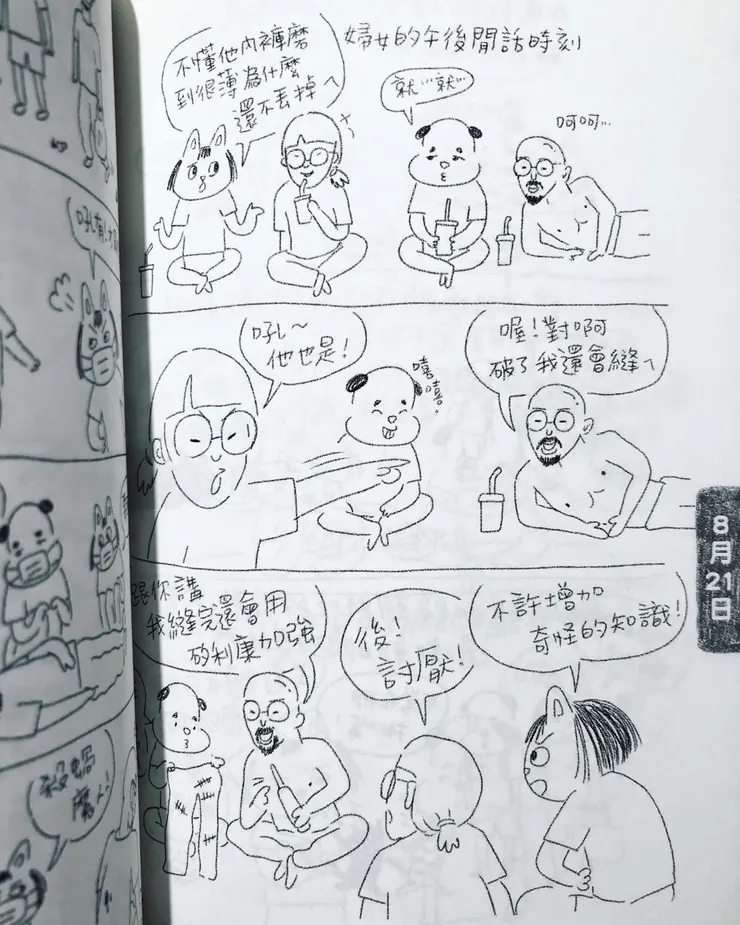 婦女的午後閒話時刻
不懂他內褲磨
到很薄為什麼
還不丟掉ㄟ
就…就…
呵呵…
吼~
他也是!
嘻
嘻
喔!對啊
破了我還會縫ㄟ
跟你講
我縫完還會用
矽利康加強
後!
討厭!
不許增加
奇怪的知識!
8月21日
吼有
殺蝸
魔人!